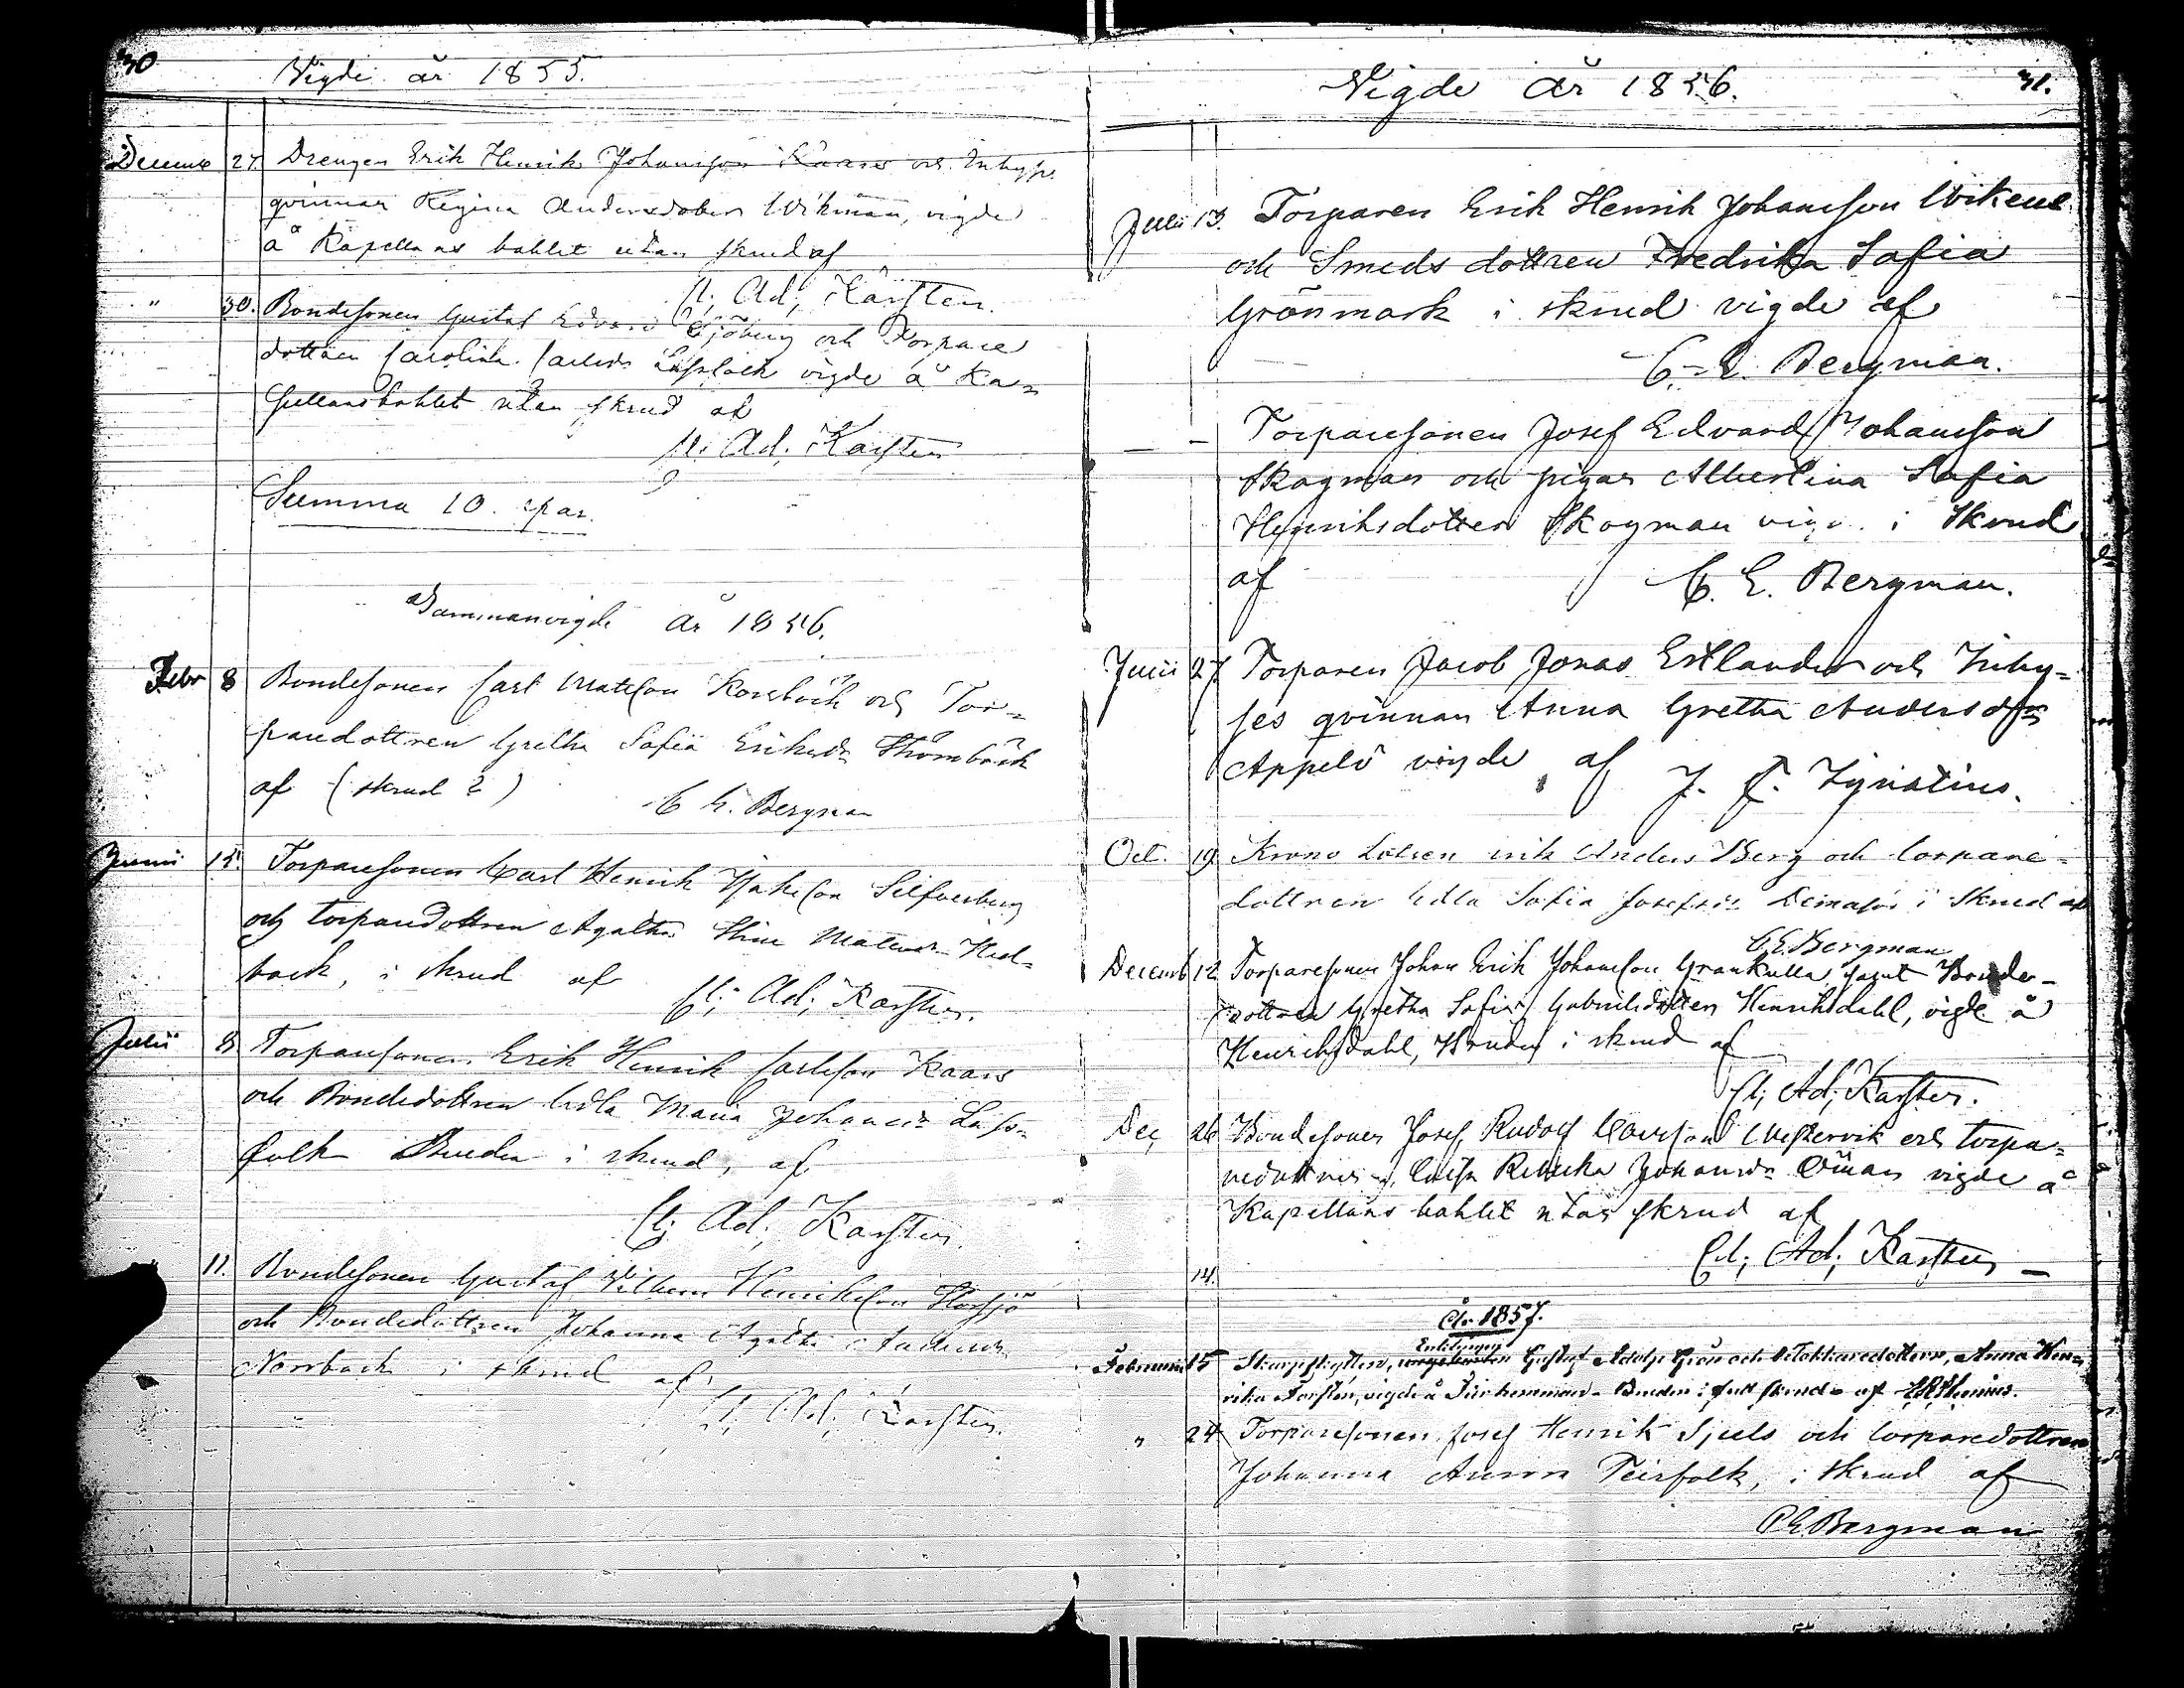 30
Vigde år 1855.
Decembe 27. Drengen Erik Henrik Johansson Kaars och Inhyses
qvinnan Regina Andersdotter Wikman, vigde
å Kapellans bohlet utan skrud af
Cl; Ad; Karsten.
" 30. Bondesonen Gustaf Edvard Sjöberg och Torpare
dottren Carolina Carlsdr vigde å Ka=
pellansbohlet utan skrud af
Cl; Ad; Karsten
Summa 10. par.
Sammanvigde år 1856.
Febr 8 Bondesonen Carl Matsson Korsbäck och Tor=
paredottren Gretha Sofia Eriksdr Strömbäck
af (skrud?)
C E. Bergman
Junii 15. Torparesonen Carl Henrik Silfverberg
och torparedottren Agatha Stina Mattsdr Hed=
back, i skrud af
Cl; Ad; Karsten.
Julii 8 Torparesonen Erik Henrik Carlsson Kaars
och Bondedottren Edla Maria Johansdr Lass=
folk Bruden i skrud, af
Cl; Ad; Karsten.
11. Bondesonen Gustaf Vilhem Henriksson Storsjö
och Bondedottren Johanna Agatha Andersdr
Norrback i skrud af
Cl; Ad; Karsten.
Vigde år 1856. 31.
Julii 13. Torparen Erik Henrik Johansson Wikens
och Smeds dottren Fredrika Sofia
Grönmark i skrud vigde af
C. E. Bergman.
– Torparesonen Josef Edvard Johansson
Skogman och pigan Albertina Sofia
Henriksdotter Skogman vigd. i skrud
af C. E. Bergman.
Junii 27 Torparen Jacob Jonas Estlander och Inhy=
ses qvinnan Anna Gretha Andersdr
Appelö vigde af J. F. Ignatius.
Oct. 19 Krono Lotsen Erik Anders Berg och torpare=
dottren Edla Sofia Josefsdr i skrud af
C. E. Bergman
Decemb 12 Torparesonen Johan Erik Johansson Grankulla samt Bonde-
dottren Gretha Sofia Gabrielsdotter Henriksdahl, vigde å
Henriksdahl, Bruden i skrud af
Cl; Ad; Karsten.
Dec 26 Bondesonen Josef Rudolf Carlsson Westervik och torpa=
redottren Luisa Rebecka Johansdr Öman vigde å
Kapellans bohlet utan skrud af
Cl; Ad; Karsten –
14.
År 1857.
Enklingen
Februarii 15 Skarpskytten, Gustaf Adolf Grön och Utakkaredottern, Anna Hen=
rika Torstén, vigde å Bruden i full skrud af
" 24 Torparesonen Josef Henrik Sjuls och torparedottren
Johanna Anna Teirfolk, i skrud af
C E Bergman